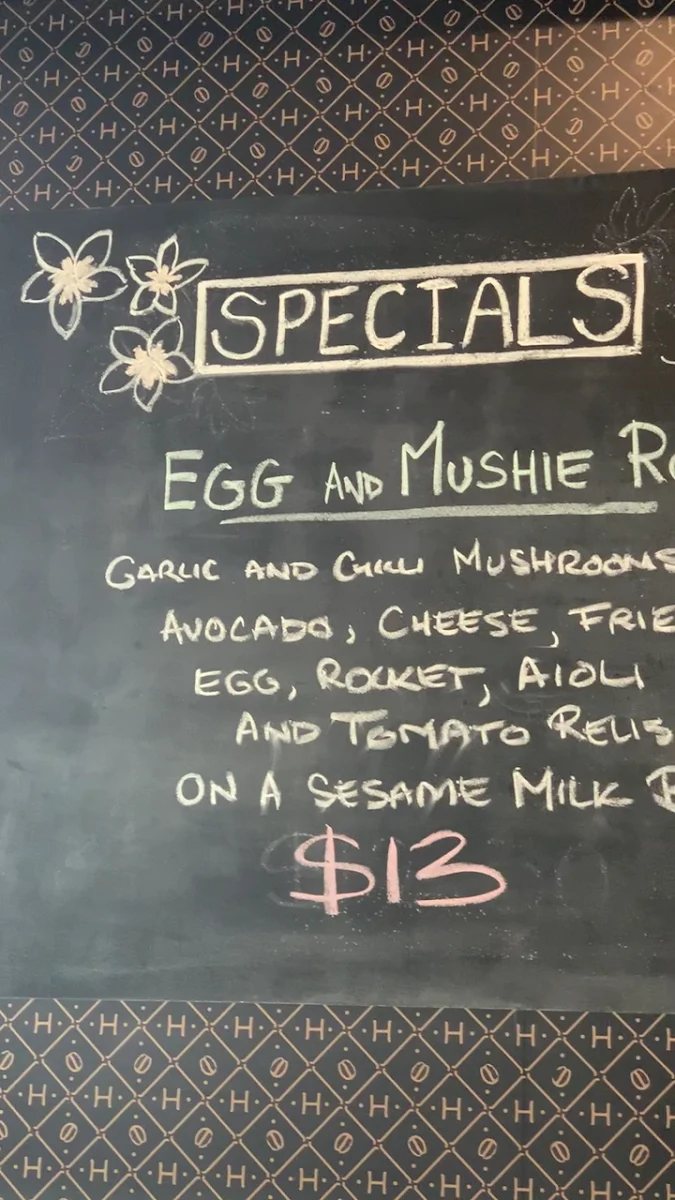 SPECIALS
EGG AND MUSHIE RO
GARLIC AND CHILLI MUSHROOMS
AVOCADO, CHEESE, FRIE
EGG, ROCKET, AIOLI
AND TOMATO RELIS
ON A SESAME MILK B
$13